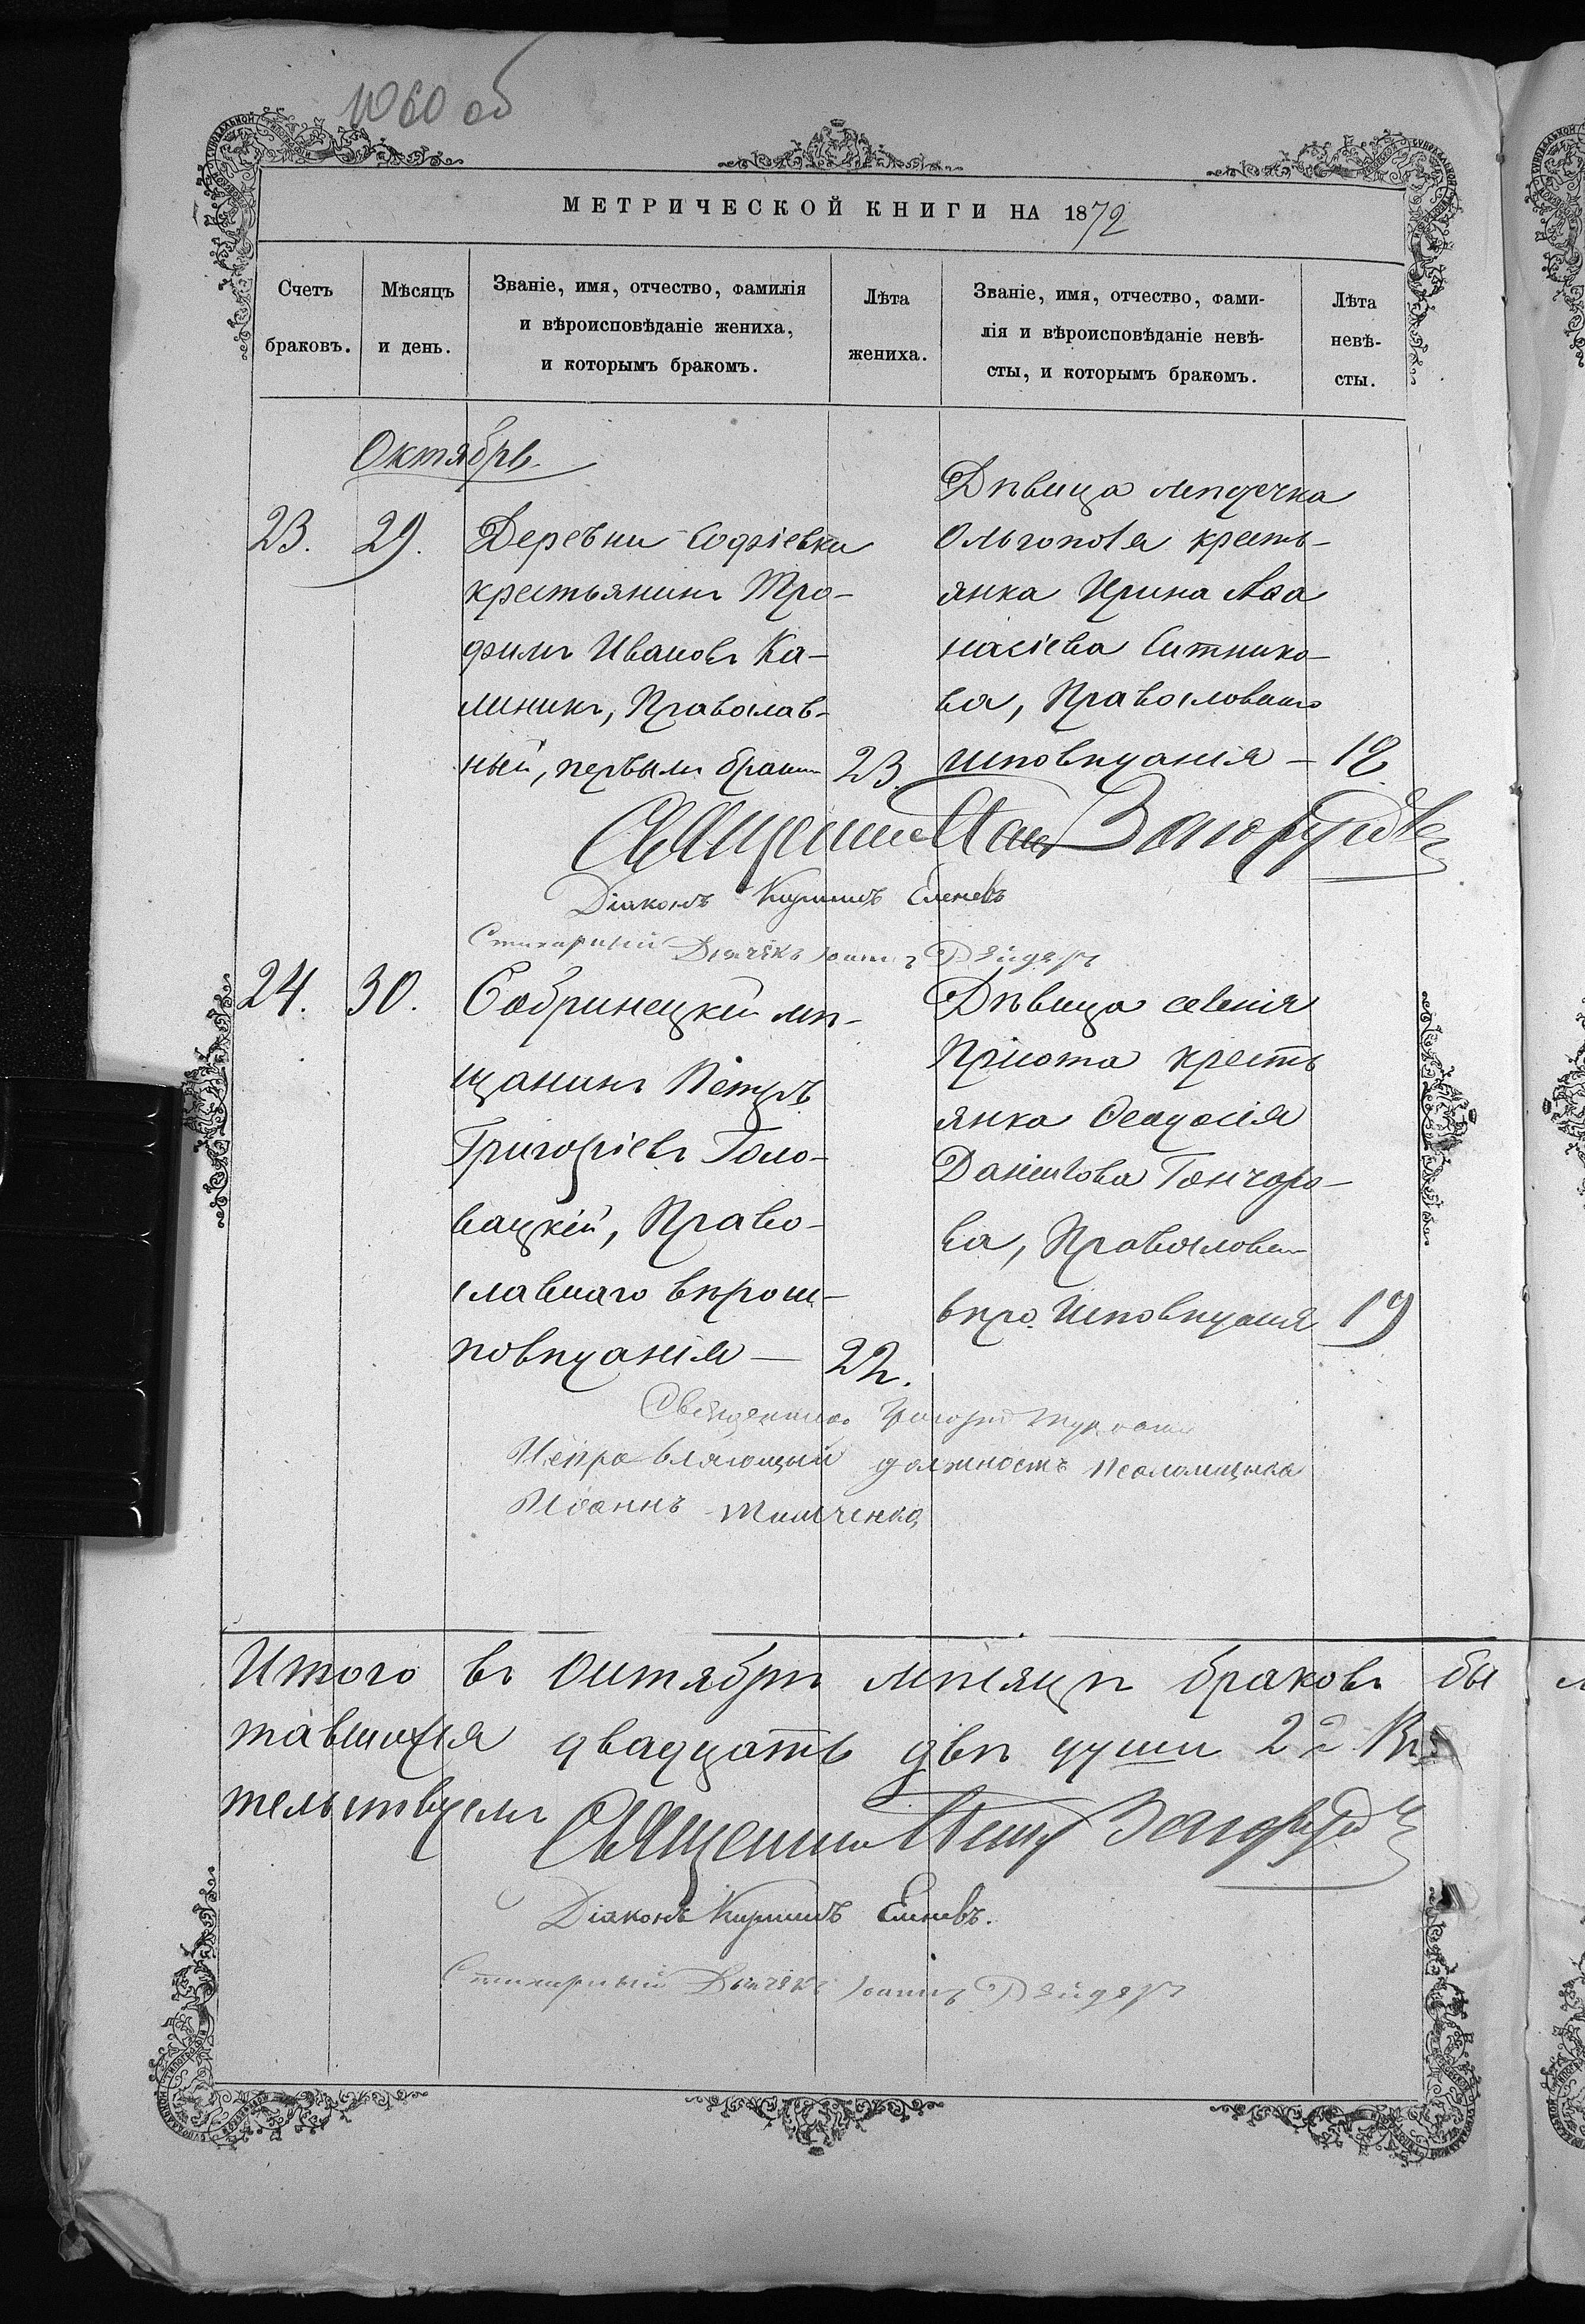 1060 об
МЕТРИЧЕСКОЙ КНИГИ НА 1872
Счетъ браковъ.
Мѣсяцъ и день.
Званіе, имя, отчество, фамилія
и вѣроисповѣданіе жениха,
и которымъ бракомъ.
Лѣта жениха.
Званіе, имя, отчество, фами-
лія и вѣроисповѣданіе невѣ-
сты, и которымъ бракомъ.
Лѣта невѣ-
сты.
Октябрь.
23. 29.
Деревни Софіевки
крестьянинъ Тро-
фимъ Ивановъ Ка-
лининъ, Православ-
ный, первымъ бракомъ 23.
Дѣвица мѣстечка
Ольгополя кресть-
янка Ирина Аѳа
насіева Ситнико-
ва, Православнаго
исповѣданія — 18
Священникъ
Діаконъ Кириллъ Еленевъ
Стихарный Дьячекъ Іоаннъ
24. 30.
Бобринецкій мѣ-
щанинъ Петръ
Григоріевъ Голо-
вацкій, Право-
славнаго вѣроис-
повѣданія — 22.
Дѣвица селенія
Пріюта кресть
янка Ѳеодосія
Даниилова Гончаро-
ва, Православн
вѣро. Исповѣданія 19
Священникъ Григорій
Исправляющій должность псаломщика
Іоаннъ Тимченко
Итого въ Октябрѣ мѣсяцѣ браковъ бы
тавшихся двадцать двѣ души 22
тельствуемъ
Священникъ
Діаконъ Кириллъ Еленевъ.
Стихарный Дьячекъ Іоаннъ